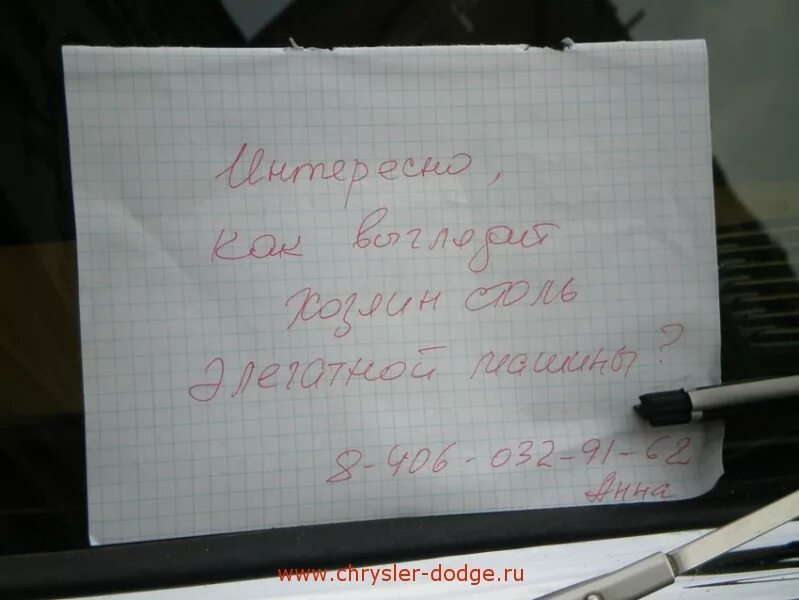 Интересно,
как выглядит
хозяин столь
элегатной машины?
8-906-032-91-62
Анна
www.chrysler-dodge.ru